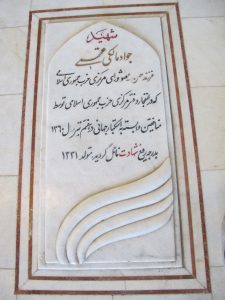 شهید
جواد مالکی
فرزند حسن: عضو شورای مرکزی حزب جمهوری اسلامی
که در انفجار دفتر مرکزی حزب جمهوری اسلامی توسط
منافقین وابسته به استکبار جهانی در هفتم تیر سال ۱۳۶۰
بدرجه رفیع شهادت نائل گردید، تولد ۱۳۳۱